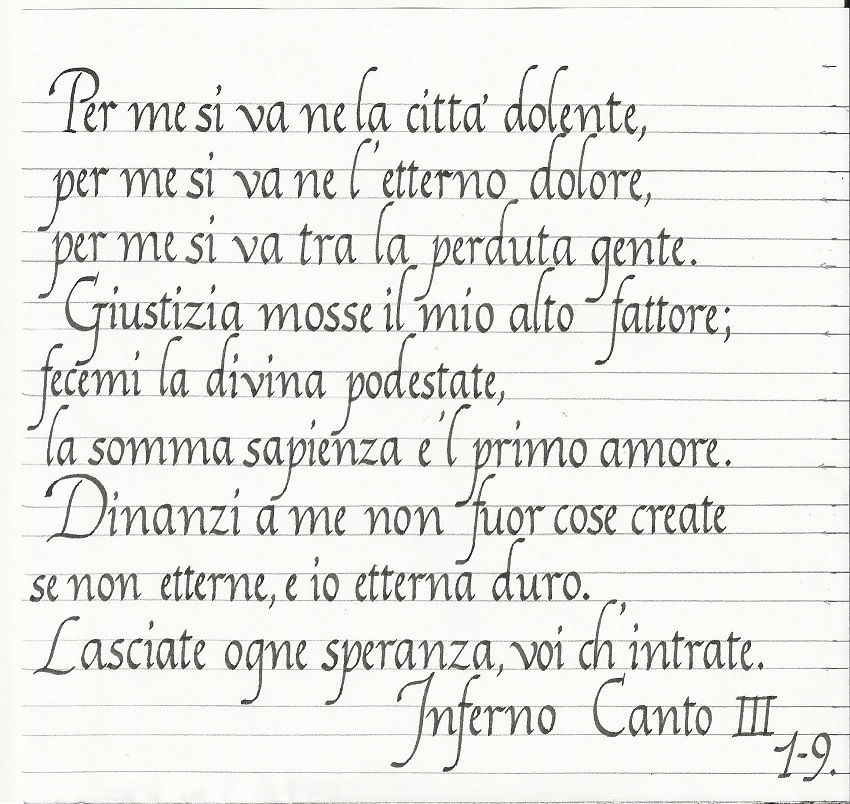 Per me si va ne la citta' dolente,
per me si va ne l'etterno dolore,
per me si va tra la perduta gente.
Giustizia mosse il mio alto fattore;
fecemi la divina podestate,
la somma sapienza e'l primo amore.
Dinanzi a me non fuor cose create
se non etterne, e io etterna duro.
Lasciate ogne speranza, voi ch'intrate.
Inferno Canto III
1-9.